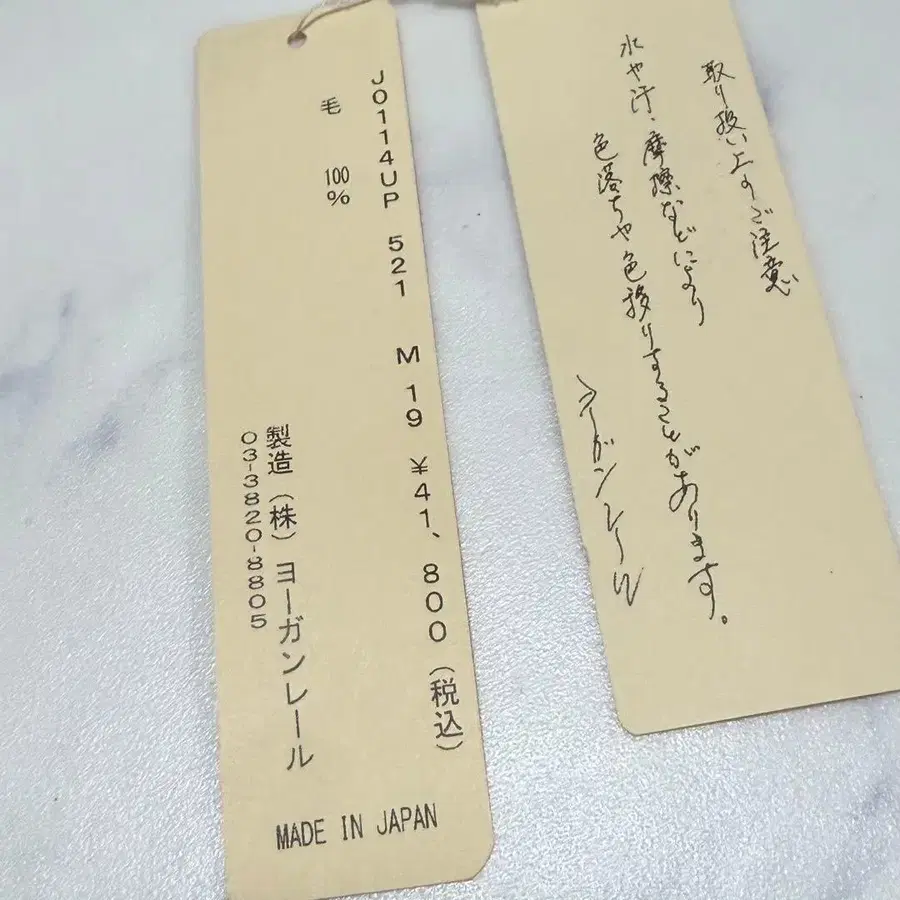 J0114UP 521 M 19 ¥41、800(税込)
毛 100%
製造(株)ヨーガンレール
03-3820-8805
MADE IN JAPAN
取り扱い上のご注意
水や汗、摩擦などにより
色落ちや色移りすることがあります。
ヨーガンレール